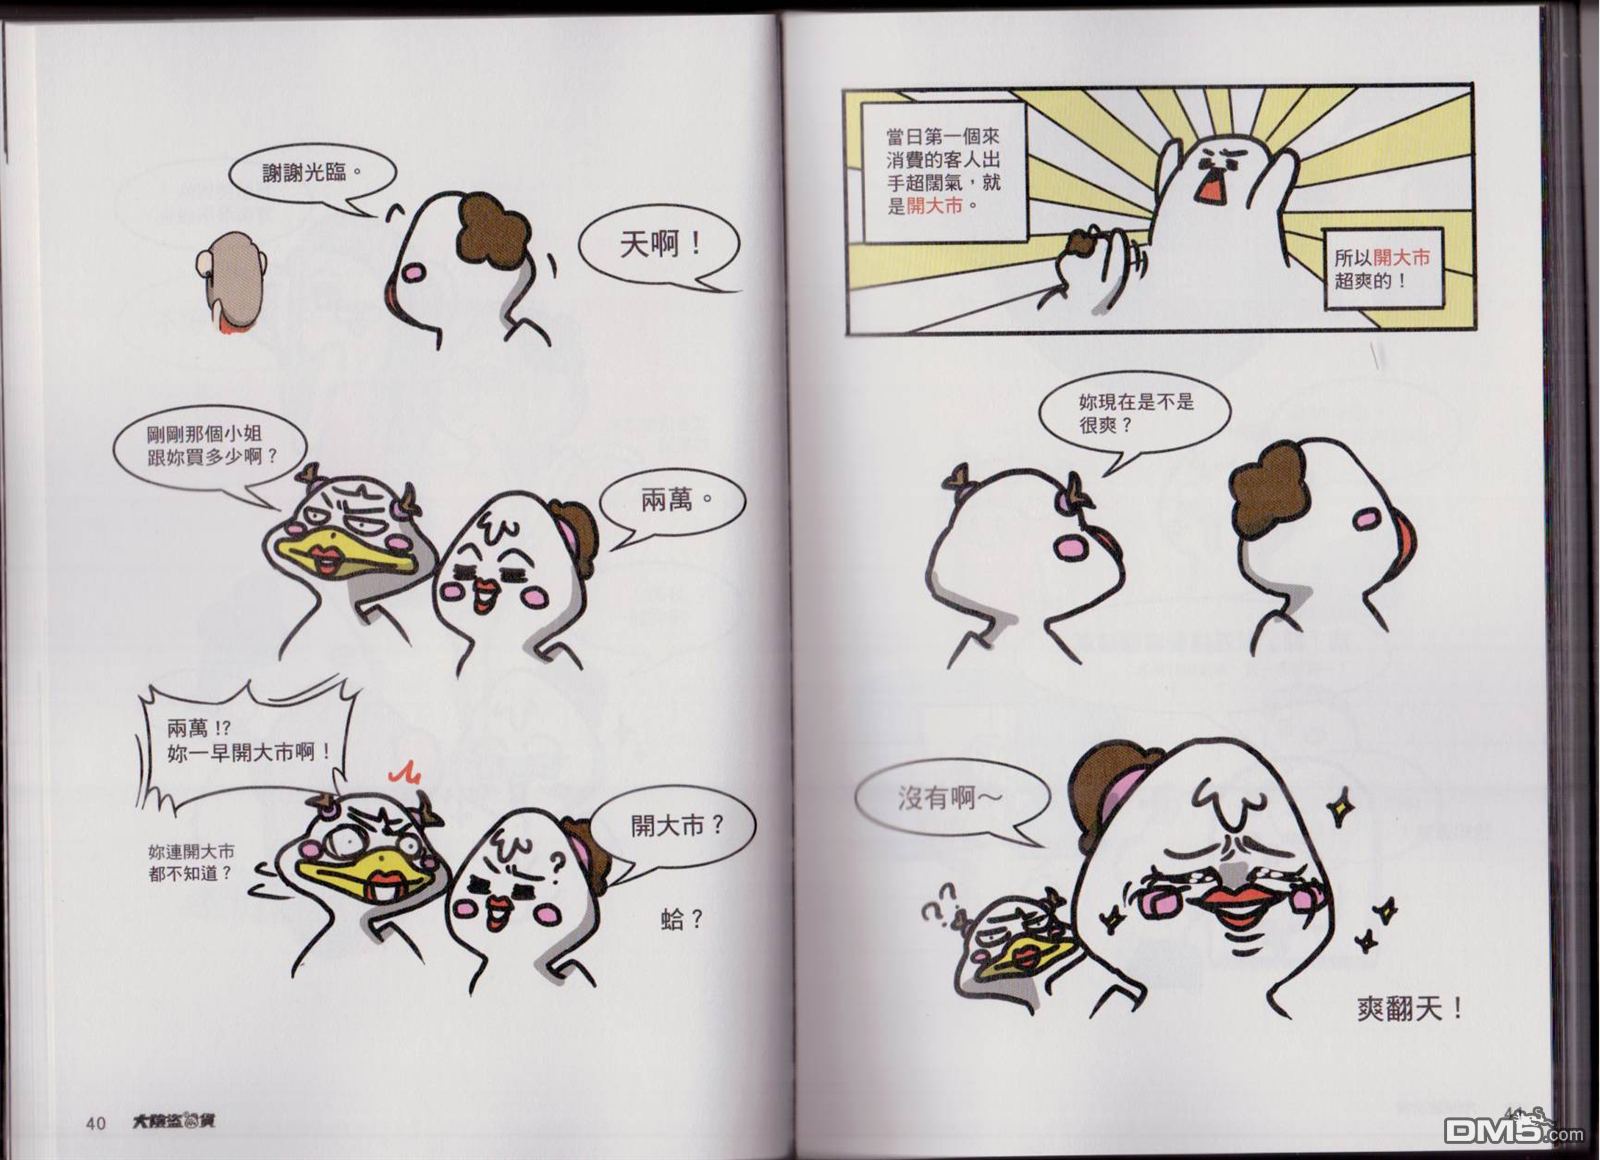 謝謝光臨。
天啊！
剛剛那個小姐
跟妳買多少啊？
兩萬。
兩萬!?
妳一早開大市啊！
妳連開大市
都不知道？
開大市？
蛤？
40
當日第一個來
消費的客人出
手超闊氣，就
是開大市。
所以開大市
超爽的！
妳現在是不是
很爽？
沒有啊～
爽翻天！
DM5.com